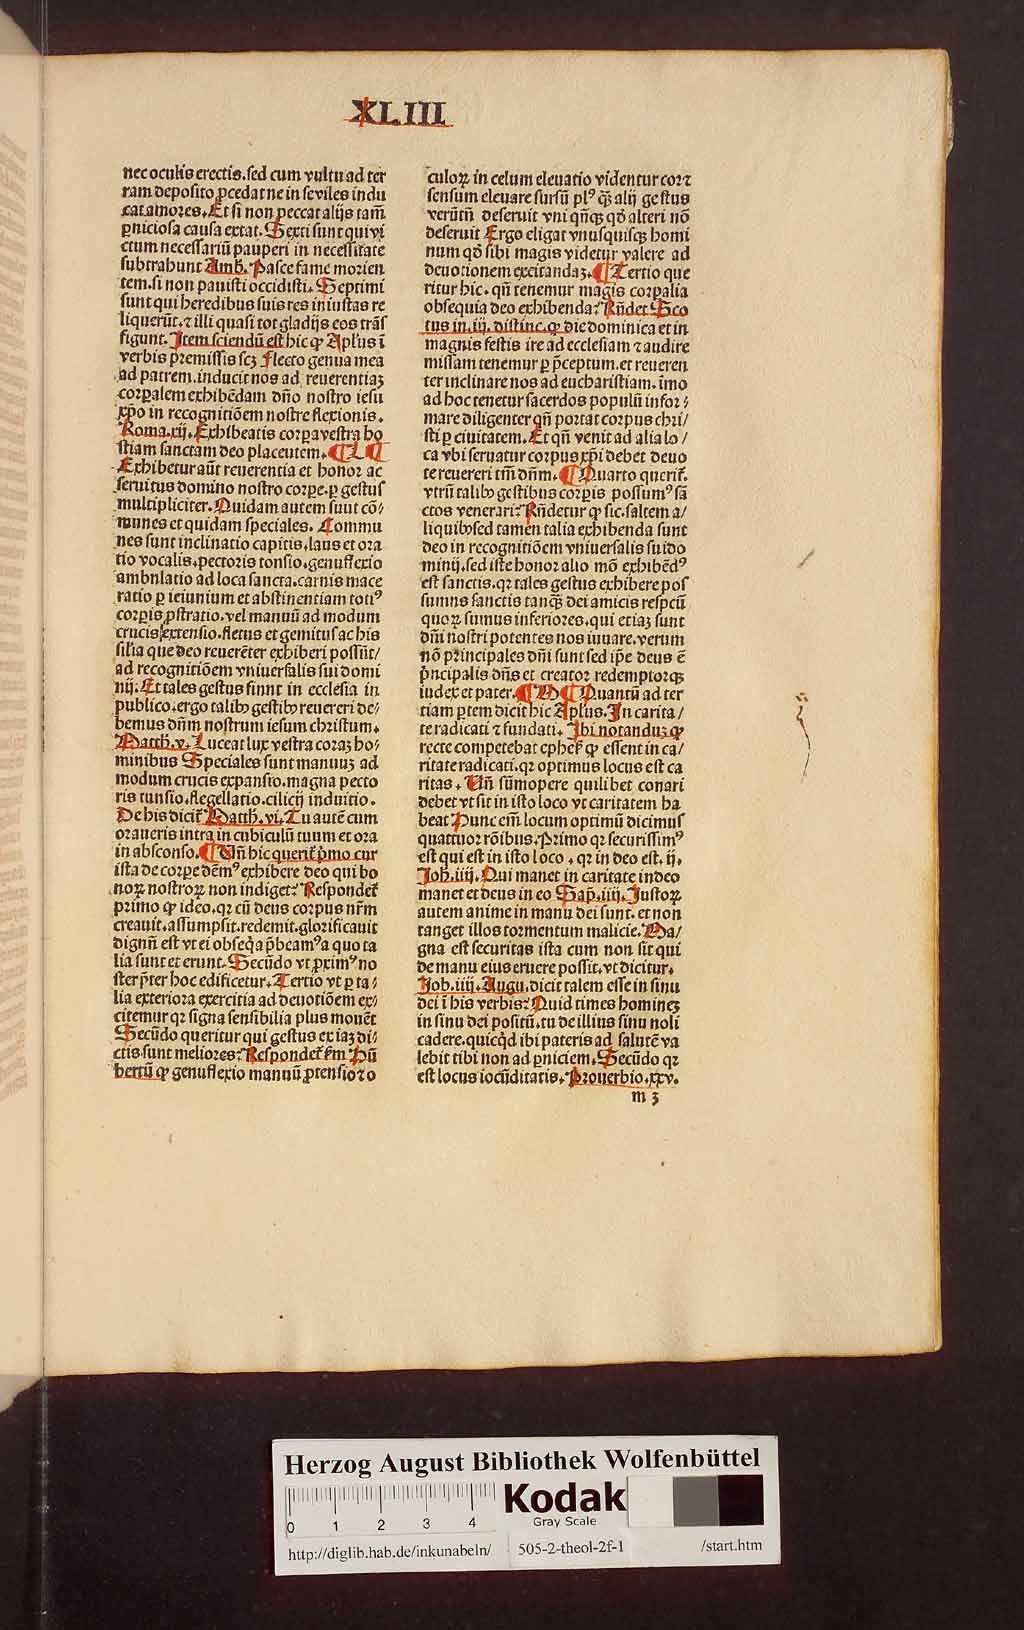 XLIII
nec oculis erectis. sed cum vultu ad ter
ram deposito ꝓcedat ne in seviles indu
cat amores. Et si non peccat alijs tam̄
ꝑniciosa causa extat. Sexti sunt qui vi
ctum necessariū pauperi in necessitate
subtrahunt Amb. Pasce fame morien
tem. si non pauisti occidisti. Septimi
sunt qui heredibus suis res iniustas re
liquerūt. ⁊ illi quasi tot gladijs eos trās
figunt. Item sciendū est hic ꝙ Aplus ī
verbis p̄missis scꝫ Flecto genua mea
ad patrem. inducit nos ad reuerentiaꝫ
corꝑalem exhibēdam dn̄o nostro iesu
xp̄o in recognitiōem nostre flexionis.
Roma. xij. Exhibeatis corpa vestra ho
stiam sanctam deo placeutem. ¶ L ¶
Exhibetur aūt reuerentia et honor ac
seruitus domino nostro corꝑe. ꝑ gestus
multipliciter. Quidam autem suut cō⸗
munes et quidam speciales. Commu
nes sunt inclinatio capitis. laus et ora
tio vocalis. pectoris tonsio. genuflexio
ambnlatio ad loca sancta. carnis mace
ratio ꝑ ieiunium et abstinentiam totiꝰ
corꝑis ꝓstratio. vel manuū ad modum
crucis extensio. fletus et gemitus ac his
silia que deo reuerēter exhiberi possūt/
ad recognitiōem vniuersalis sui domi
nij. Et tales gestus finnt in ecclesia in
publico. ergo talibꝰ gestibꝰ reuereri de⸗
bemus dn̄m nostrum iesum christum.
Matth. v. Luceat lux vestra coraꝫ ho⸗
minibus Speciales sunt manuuꝫ ad
modum crucis expansio. magna pecto
ris tunsio. flegellatio. cilicij induitio.
De his dicit̄ Matth. vi. Tu autē cum
oraueris intra in cubiculū tuum et ora
in absconso. ¶ Un̄ hic querit̄ p̄mo cur
ista de corꝑe dēmꝰ exhibere deo qui bo
noꝝ nostroꝝ non indiget? Respondet̄
primo ꝙ ideo. qꝛ cū deus corpus nr̄m
creauit. assumpsit. redemit. glorificauit
dignū est vt ei obseq̄a p̄beamꝰ a quo ta
lia sunt et erunt. Secūdo vt ꝓximꝰ no
ster p̄ter hoc edificetur. Tertio vt ꝑ ta⸗
lia exteriora exercitia ad deuotiōem ex⸗
citemur qꝛ signa sensibilia plus mouēt
Secūdo queritur qui gestus ex iaꝫ di⸗
ctis sunt meliores? Respondet̄ ẜm Hū
bertū ꝙ genuflexio manuū ꝓtensio ⁊ o
culoꝝ in celum eleuatio videntur cor ⁊
sensum eleuare sursū plꝰ qꝫ alij gestus
verūtn̄ deseruit vni qn̄qꝫ qḋ alteri nō
deseruit Ergo eligat vnusquisqꝫ homi
num qḋ sibi magis videtur valere ad
deuotionem excitandaꝫ. ¶ Tertio que
ritur hic. qn̄ tenemur magis corꝑalia
obsequia deo exhibenda? Rn̄det Sco
tus in. iij. distinc. ꝙ die dominica et in
magnis festis ire ad ecclesiam ⁊ audire
missam tenemur ꝑ p̄ceptum. et reueren
ter inclinare nos ad eucharistiam. īmo
ad hoc tenetur sacerdos populū infor⸗
mare diligenter qn̄ portat corpus chri/
sti ꝑ ciuitatem. Et qn̄ venit ad alia lo/
ca vbi seruatur corpus xp̄i debet deuo
te reuereri tm̄ dn̄m. ¶ Quarto querit̄.
vtrū talibꝰ gestibus corꝑis possumꝰ sā
ctos venerari? Rn̄detur ꝙ sic. saltem a/
liquibꝰ sed tamen talia exhibenda sunt
deo in recognitiōem vniuersalis sui do
minij. sed iste honor alio mō exhibēdꝰ
est sanctis. qꝛ tales gestus exhibere pos
sumus sanctis tanqꝫ dei amicis respcū
quoꝝ sumus inferiores. qui etiaꝫ sunt
dn̄i nostri potentes nos iuuare. verum
nō principales dn̄i sunt sed ip̄e deus ē
p̄ncipalis dn̄s et creator redemptorqꝫ
iudex et pater. ¶ M ¶ Quantū ad ter
tiam ꝑtem dicit hic Aplus. In carita/
te radicati ⁊ fundati. Ibi notanduꝫ ꝙ
recte competebat ephes̄ ꝙ essent in ca/
ritate radicati. qꝛ optimus locus est ca
ritas. Un̄ sūmopere quilibet conari
debet vt sit in isto loco vt caritatem ha
beat Hunc eim̄ locum optimū dicimus
quattuor rōibus. Primo qꝛ securissimꝰ
est qui est in isto loco. qꝛ in deo est. ij.
Joh. iiij. Qui manet in caritate in deo
manet et deus in eo Sap. iiij. Justoꝝ
autem anime in manu dei sunt. et non
tanget illos tormentum malicie. Ma/
gna est securitas ista cum non sit qui
de manu eius eruere possit. vt dicitur.
Job. iiij. Augu. dicit talem esse in sinu
dei ī his verbis? Quid times homineꝫ
in sinu dei positū. tu de illius sinu noli
cadere. quicq̇d ibi pateris ad salutē va
lebit tibi non ad ꝑniciem. Secūdo qꝛ
est locus iocūditatis. Prouerbio. xxv.
m 3
Herzog August Bibliothek Wolfenbüttel
0 1 2 3 4
Kodak
Gray Scale
http://diglib.hab.de/inkunabeln/ 505-2-theol-2f-1 /start.htm